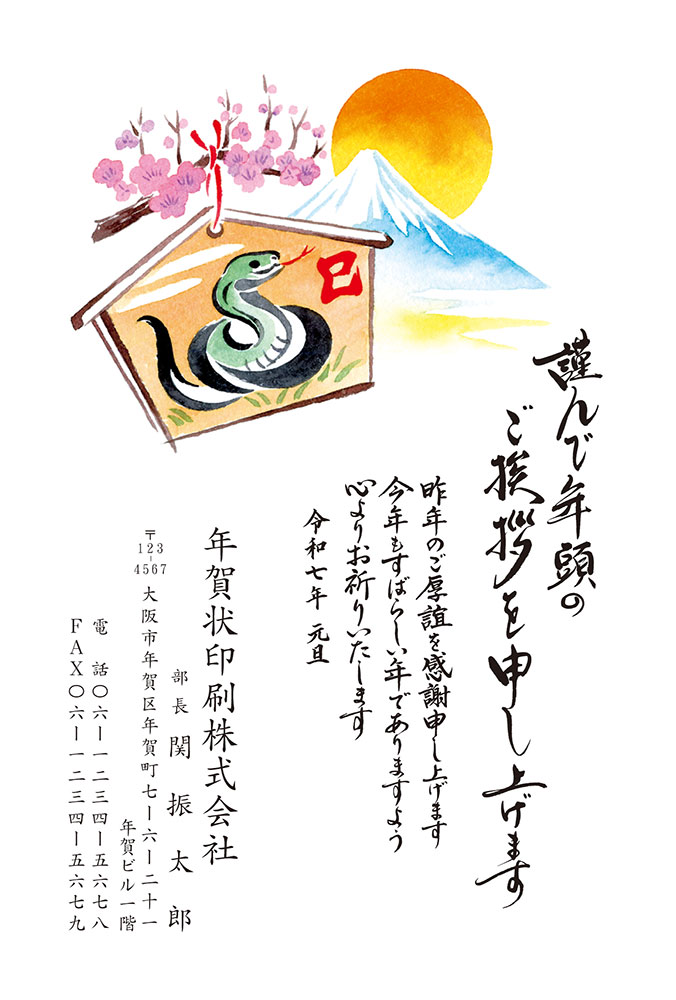 巳
謹んで年頭の
ご挨拶を申し上げます
昨年のご厚誼を感謝申し上げます
今年もすばらしい年でありますよう
心よりお祈りいたします
令和七年 元旦
年賀状印刷株式会社
部長 関振太郎
〒123-4567 大阪市年賀区年賀町七ー六ー二十一
年賀ビル一階
電話〇六ー一二三四ー五六七八
FAX〇六ー一二三四ー五六七九